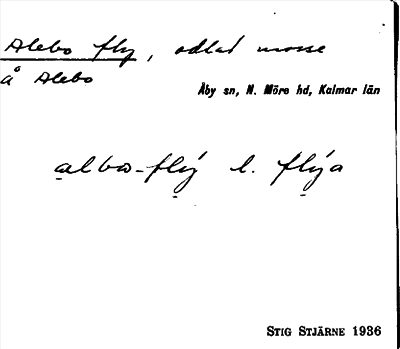 Alebo fly, odlad mosse
å Alebo
Åby sn, N. Möre hd, Kalmar län
albo-flý l. flýa
STIG STJÄRNE 1936